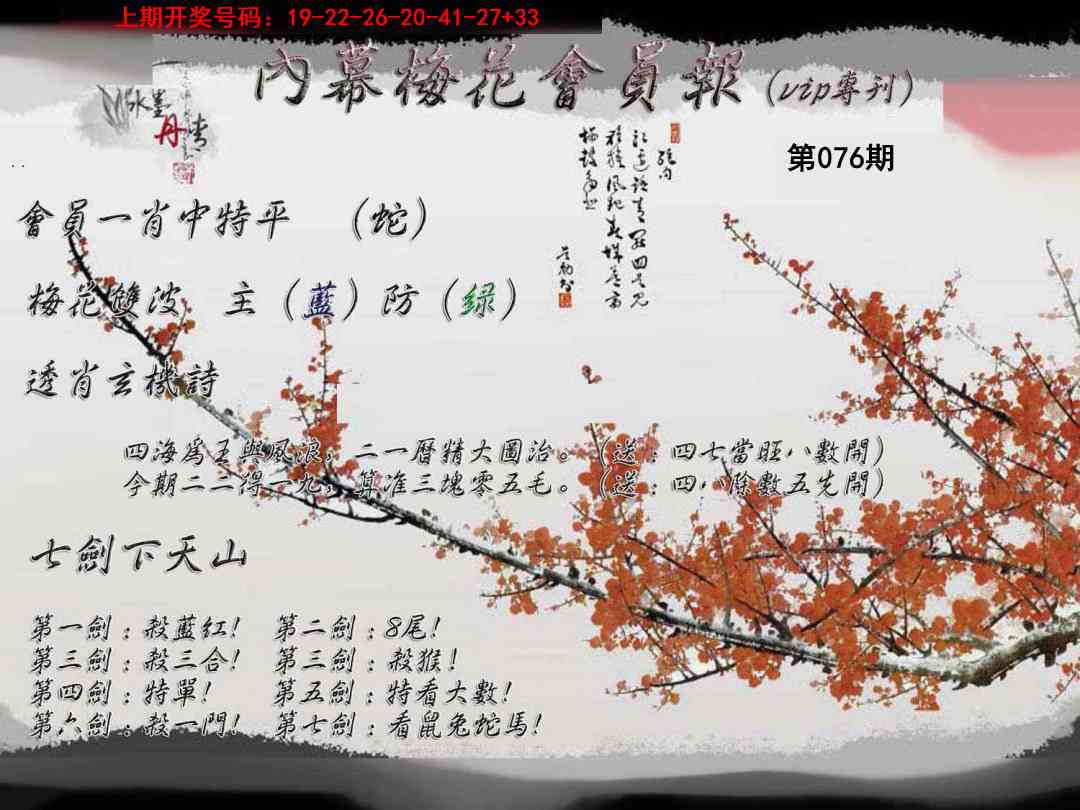 上期开奖号码：19-22-26-20-41-27+33
內幕梅花會員報（vip專刊）
水墨
丹青
第076期
會員一肖中特平 （蛇）
梅花雙波 主（藍）防（绿）
透肖玄機詩
四海爲王與風浪，二一曆精大圖治。（送：四七當旺八數開）
今期二二得一九，算准三塊零五毛。（送：四八除數五先開）
七劍下天山
第一劍：殺藍紅！ 第二劍：8尾！
第三劍：殺三合！ 第三劍：殺猴！
第四劍：特單！ 第五劍：特看大數！
第六劍：殺一門！ 第七劍：看鼠兔蛇馬！